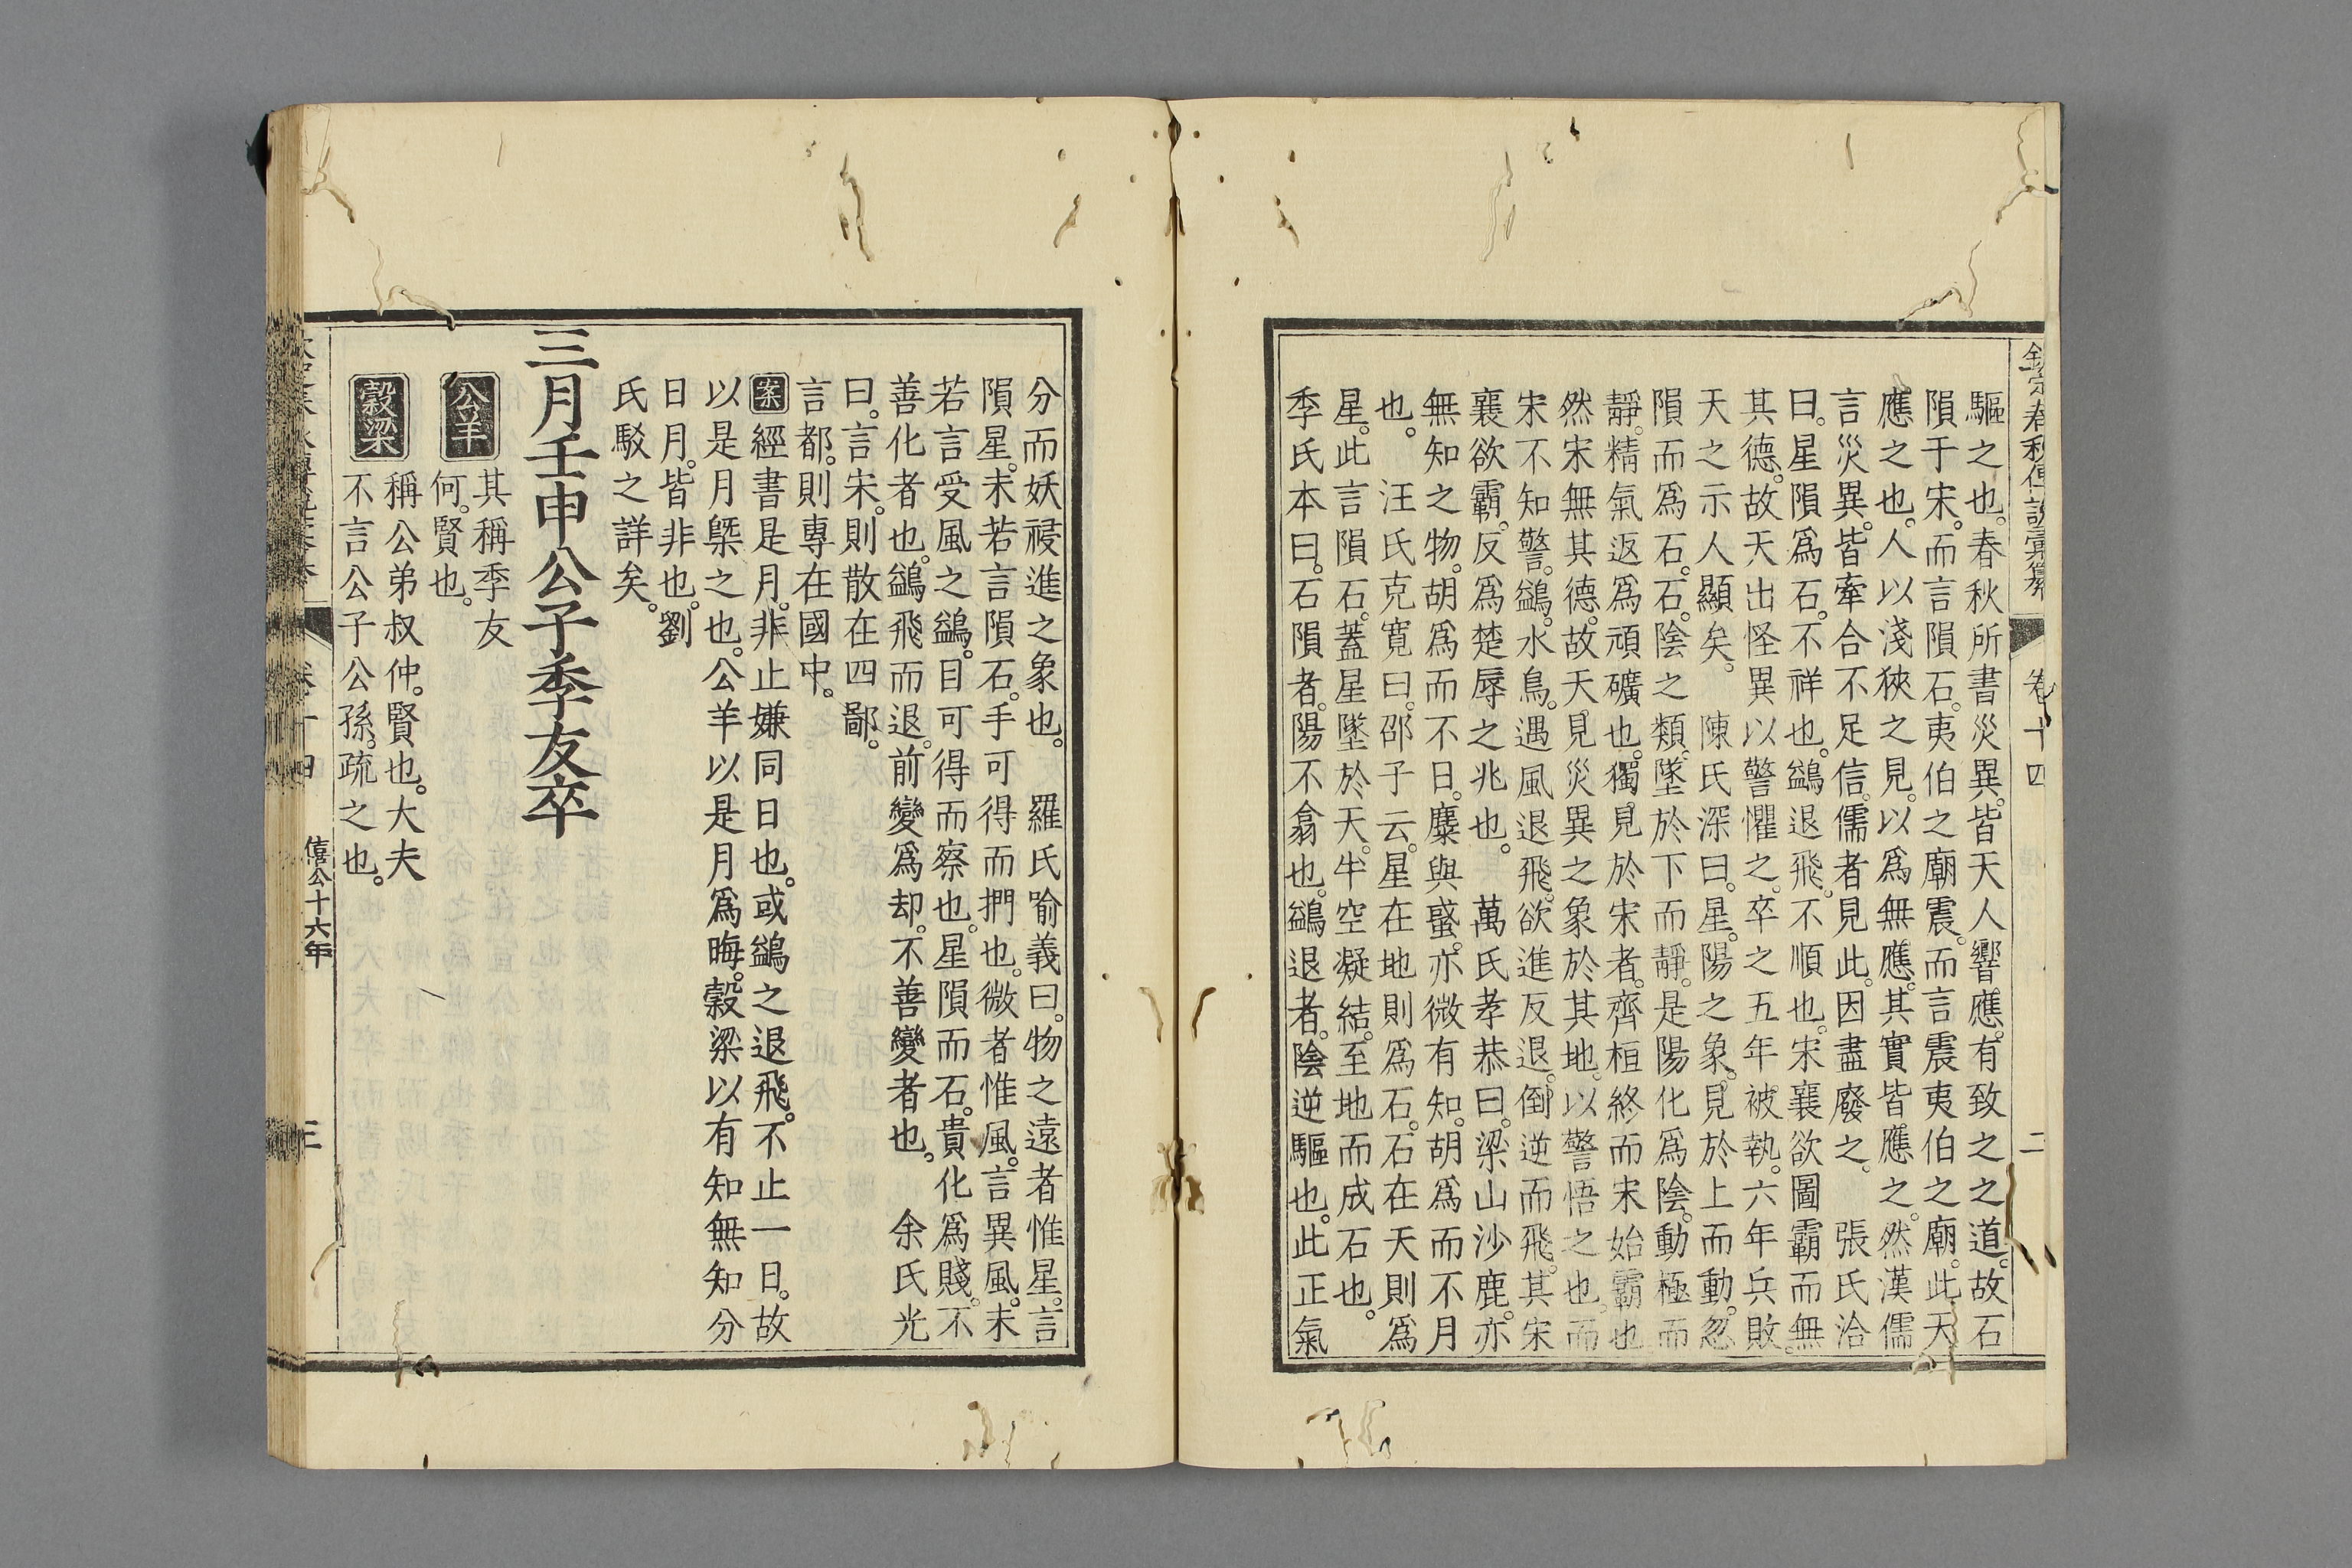 欽定春秋傳說彙纂 卷十四 二
驅之也。春秋所書災異。皆天人響應。有致之之道。故石
隕于宋。而言隕石。夷伯之廟震。而言震夷伯之廟。此天
應之也。人以淺狹之見。以爲無應。其實皆應之。然漢儒
言災異。皆牽合不足信。儒者見此。因盡廢之。 張氏洽
曰。星隕爲石。不祥也。鷁退飛。不順也。宋襄欲圖霸而無
其德。故天出怪異以警懼之。卒之五年被執。六年兵敗。
天之示人顯矣。 陳氏深曰。星。陽之象。見於上而動。忽
隕而爲石。石。陰之類。墜於下而靜。是陽化爲陰。動極而
靜。精氣返爲頑礦也。獨見於宋者。齊桓終而宋始霸也。
然宋無其德。故天見災異之象於其地。以警悟之也。而
宋不知警。鷁。水鳥。遇風退飛。欲進反退。倒逆而飛。其宋
襄欲霸。反爲楚辱之兆也。 萬氏孝恭曰。梁山沙鹿。亦
無知之物。胡爲而不日。麋與蜮。亦微有知。胡爲而不月
也。 汪氏克寬曰。邵子云。星在地則爲石。石在天則爲
星。此言隕石。蓋星墜於天。半空凝結。至地而成石也。
季氏本曰。石隕者。陽不翕也。鷁退者。陰逆驅也。此正氣
分而妖祲進之象也。 羅氏喻義曰。物之遠者惟星。言
隕星。未若言隕石。手可得而捫也。微者惟風。言異風。未
若言受風之鷁。目可得而察也。星隕而石。貴化爲賤。不
善化者也。鷁飛而退。前變爲却。不善變者也。 余氏光
曰。言宋。則散在四鄙。
言都。則專在國中。
案 經書是月。非止嫌同日也。或鷁之退飛。不止一日。故
以是月槩之也。公羊以是月爲晦。穀梁以有知無知分
日月。皆非也。劉
氏駁之詳矣。
三月壬申公子季友卒
公羊 其稱季友
何。賢也。
穀梁 稱公弟叔仲。賢也。大夫
不言公子公孫。疏之也。
僖公十六年 三